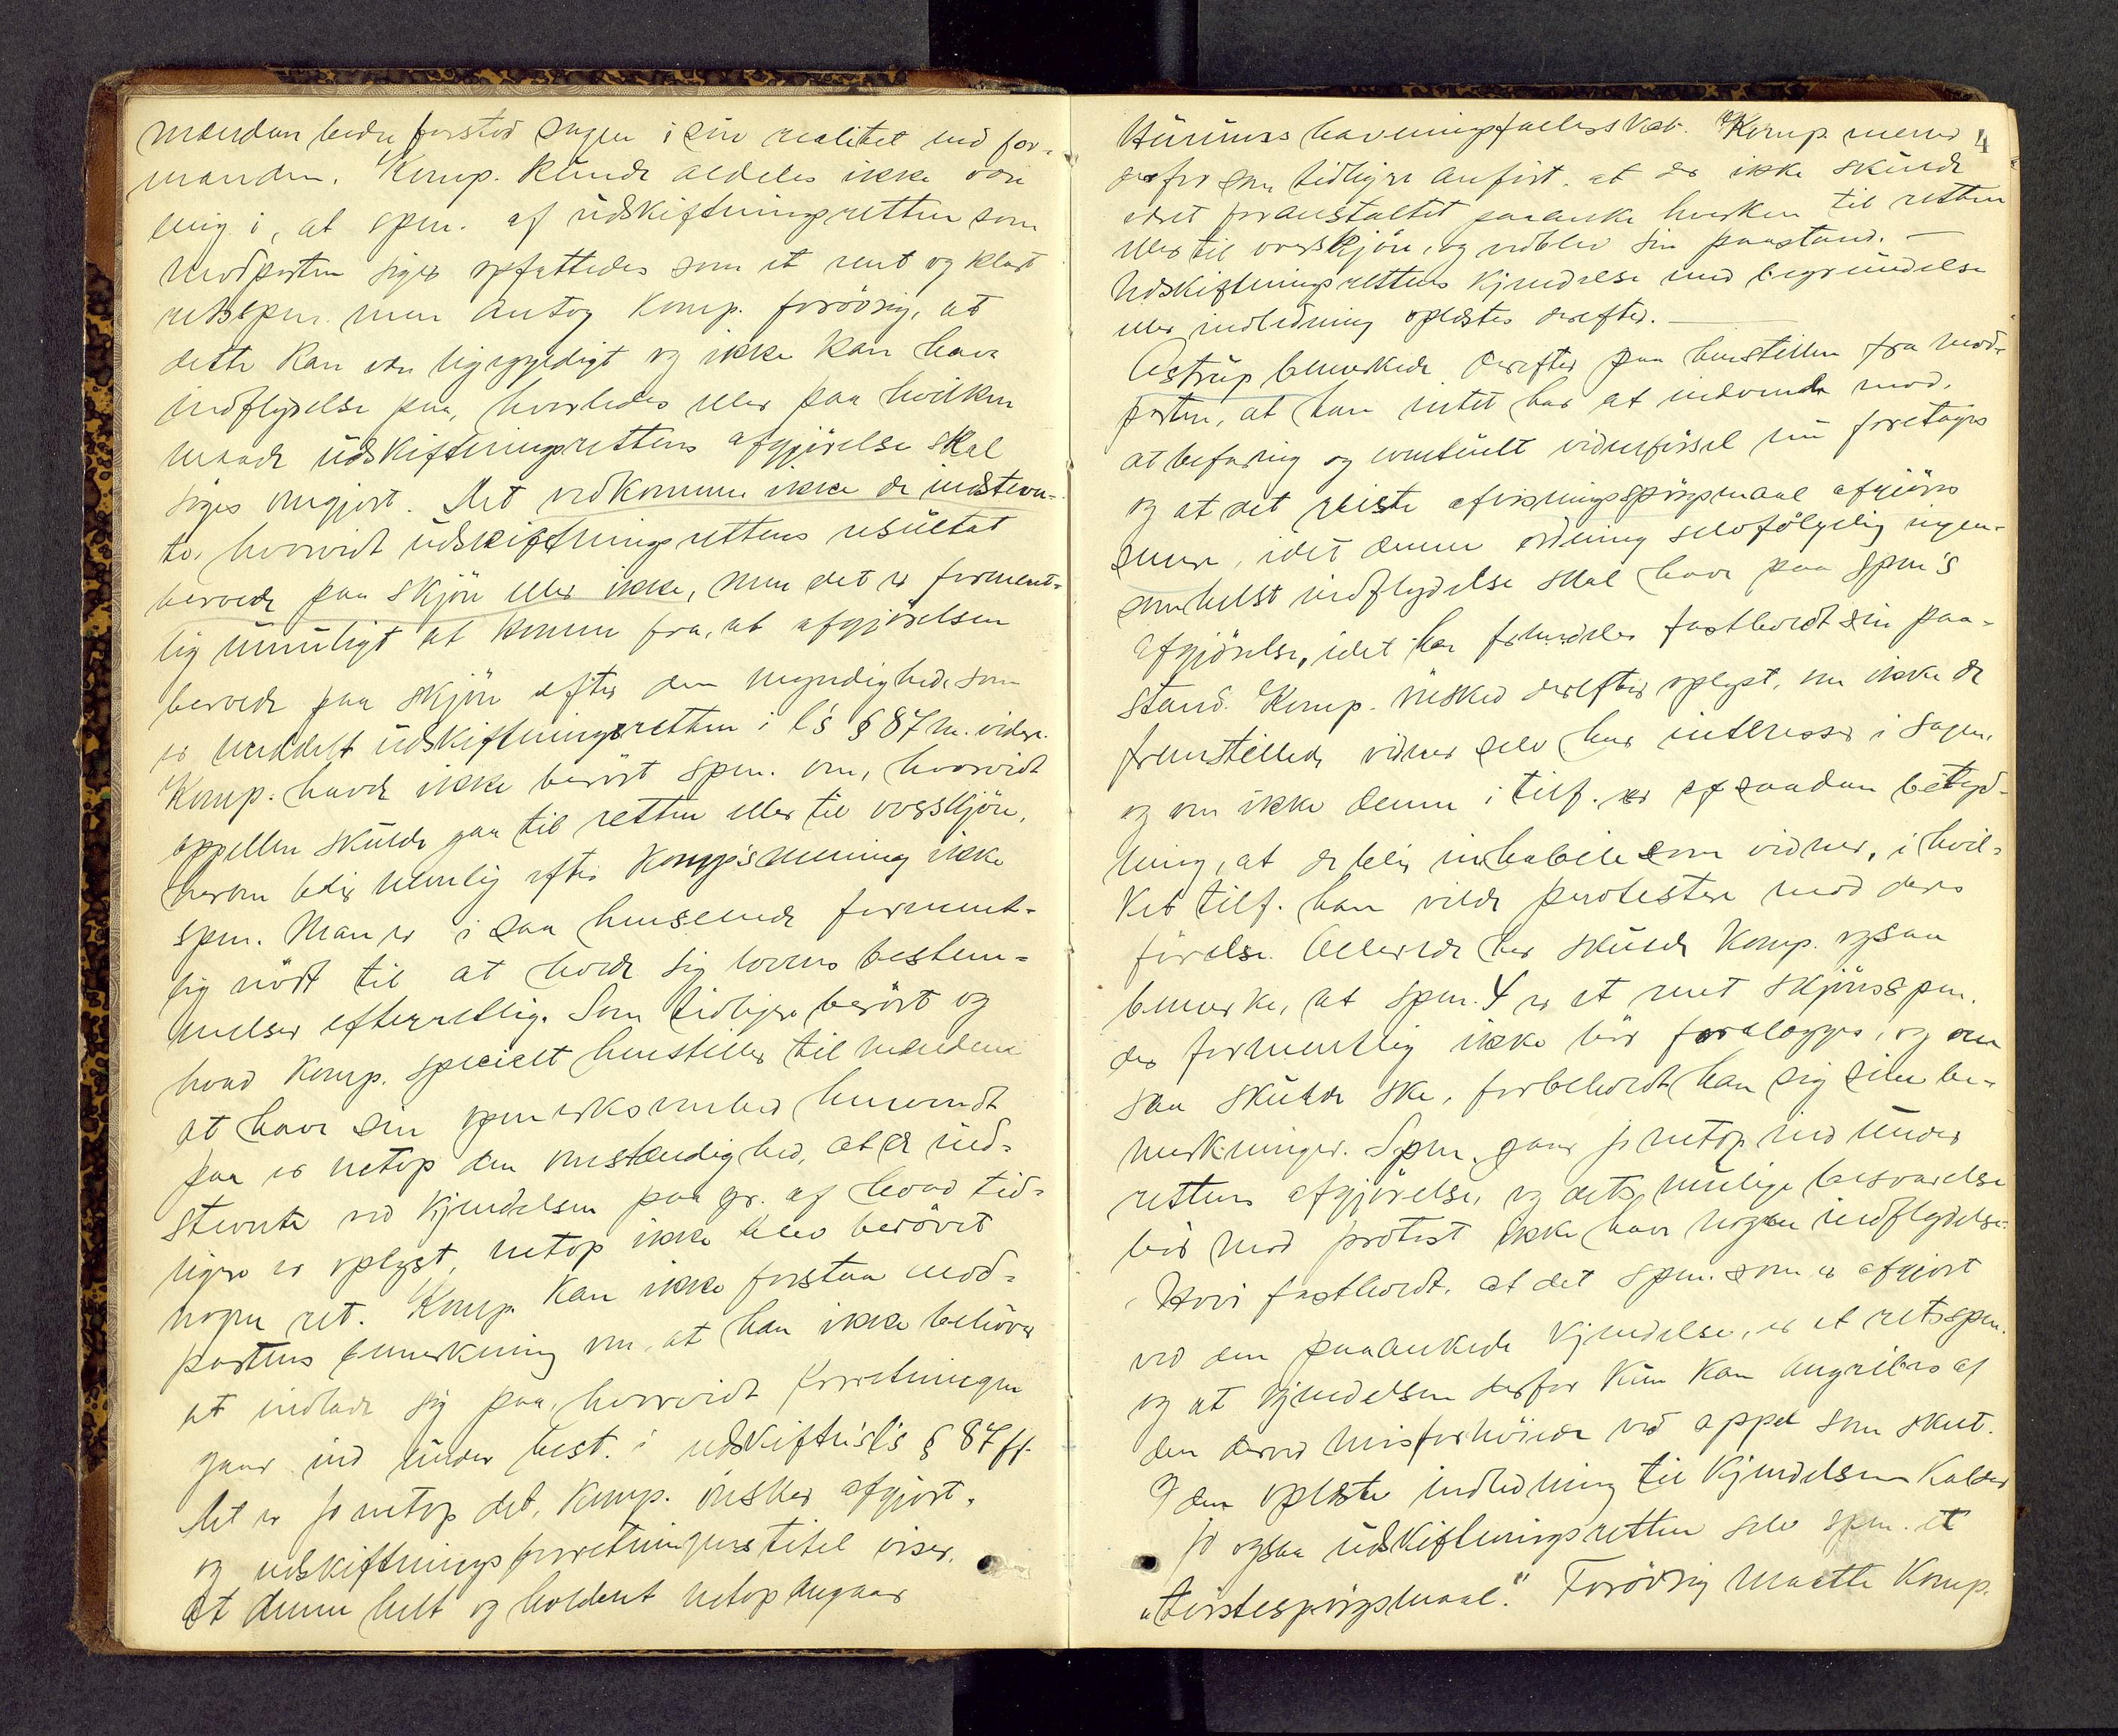 mændene bedre forstod sagen i sin realitet end for-
manden. Komp. kunde aldeles ikke være
enig i, at spm. af udskiftningsretten som
modparten siger opfattedes som et rent og klart
retsspm. men antog Komp. forøvrig, at
dette kan være ligegyldigt og ikke kan have
indflydelse paa, hvorledes eller paa hvilken
maade udskiftningsrettens afgjørelse skal
søges omgjort. Det vedkommer ikke de indstevn-
te, hvorvidt udskiftningsrettens resultat
beroede paa skjøn eller ikke, men det er forment-
lig umuligt at komme fra, at afgjørelsen
beroede paa skjøn efter den myndighed, som
er meddelt udskiftningsretten i l's § 87 m. videre.
Komp. havde ikke berørt spm. om, hvorvidt
appellen skulde gaa til retten eller til overskjøn,
herom blir nemlig efter Komp's mening ikke
spm. Man er i saa henseende forment-
lig nødt til at holde sig lovens bestem-
melser efterrettelig. Som tidligere berørt og
hvad Komp. specielt henstiller til mændene
at have sin opmerksomhed henvendt
paa er netop den omstændighed, at de ind-
stevnte ved kjendelsen paa gr. af hvad tid-
ligere er oplyst, netop ikke blev berøvet
nogen ret. Komp. kan ikke forstaa mod-
partens bemerkning om, at han ikke behøver
at indlade sig paa, hvorvidt forretningen
gaar ind under best. i udskiftn's l's § 87 ff.
Det er jo netop det, Komp. ønsker afgjort,
og udskiftningsforretningens titel viser,
at denne helt og holdent netop angaar
4
Hurums havningsfællesskab. Komp. mener
derfor som tidligere anført, at der ikke skulde
været foranstaltet paaanke hverken til retten
eller til overskjøn, og nedlev sin paastand. –
Udskiftningsrettens kjendelse med begrundelse
eller indledning oplæstes derefter. –
Astrup bemerkede derefter paa henstillen fra mod-
parten, at han intet har at indvende mod,
at befaring og eventuelt vidneførsel nu foretages
og at det reiste afvisningsspørgsmaal afgjøres
senere, idet denne ordning selvfølgelig ingen-
somhelst indflydelse skal have paa spm's
afgjørelse, idet han fremdeles fastholdt sin paa-
stand. Komp. ønsked derefter oplyst, om ikke de
fremstillede vidner selv har interesser i sagen,
og om ikke denne i tilf. er af saadan betyd-
ning, at de blir inhabile som vidner, i hvil-
ket tilf. han vilde protestere mod deres
førelse. Allerede her skulde Komp. ogsaa
bemerke, at spm. 4 er et rent skjønsspm.
der formentlig ikke bør forelægges, og om
saa skulde ske, forbeholdt han sig sine be-
merkninger. Spm. gaar jo netop ind under
rettens afgjørelse, og dets mulige besvarelse
bør mod protest ikke have nogen indflydelse.
Hovi fastholdt, at det spm. som er afgjort
ved den paaankede kjendelse, er et retsspm.
og at kjendelsen derfor kun kan angribes af
den derved misfornøiede ved appel som skeet.
I den oplæste indledning til kjendelsen kalder
jo ogsaa udskiftningsretten selv spm. et
"tvistespørgsmaal". Forøvrig maatte Komp.